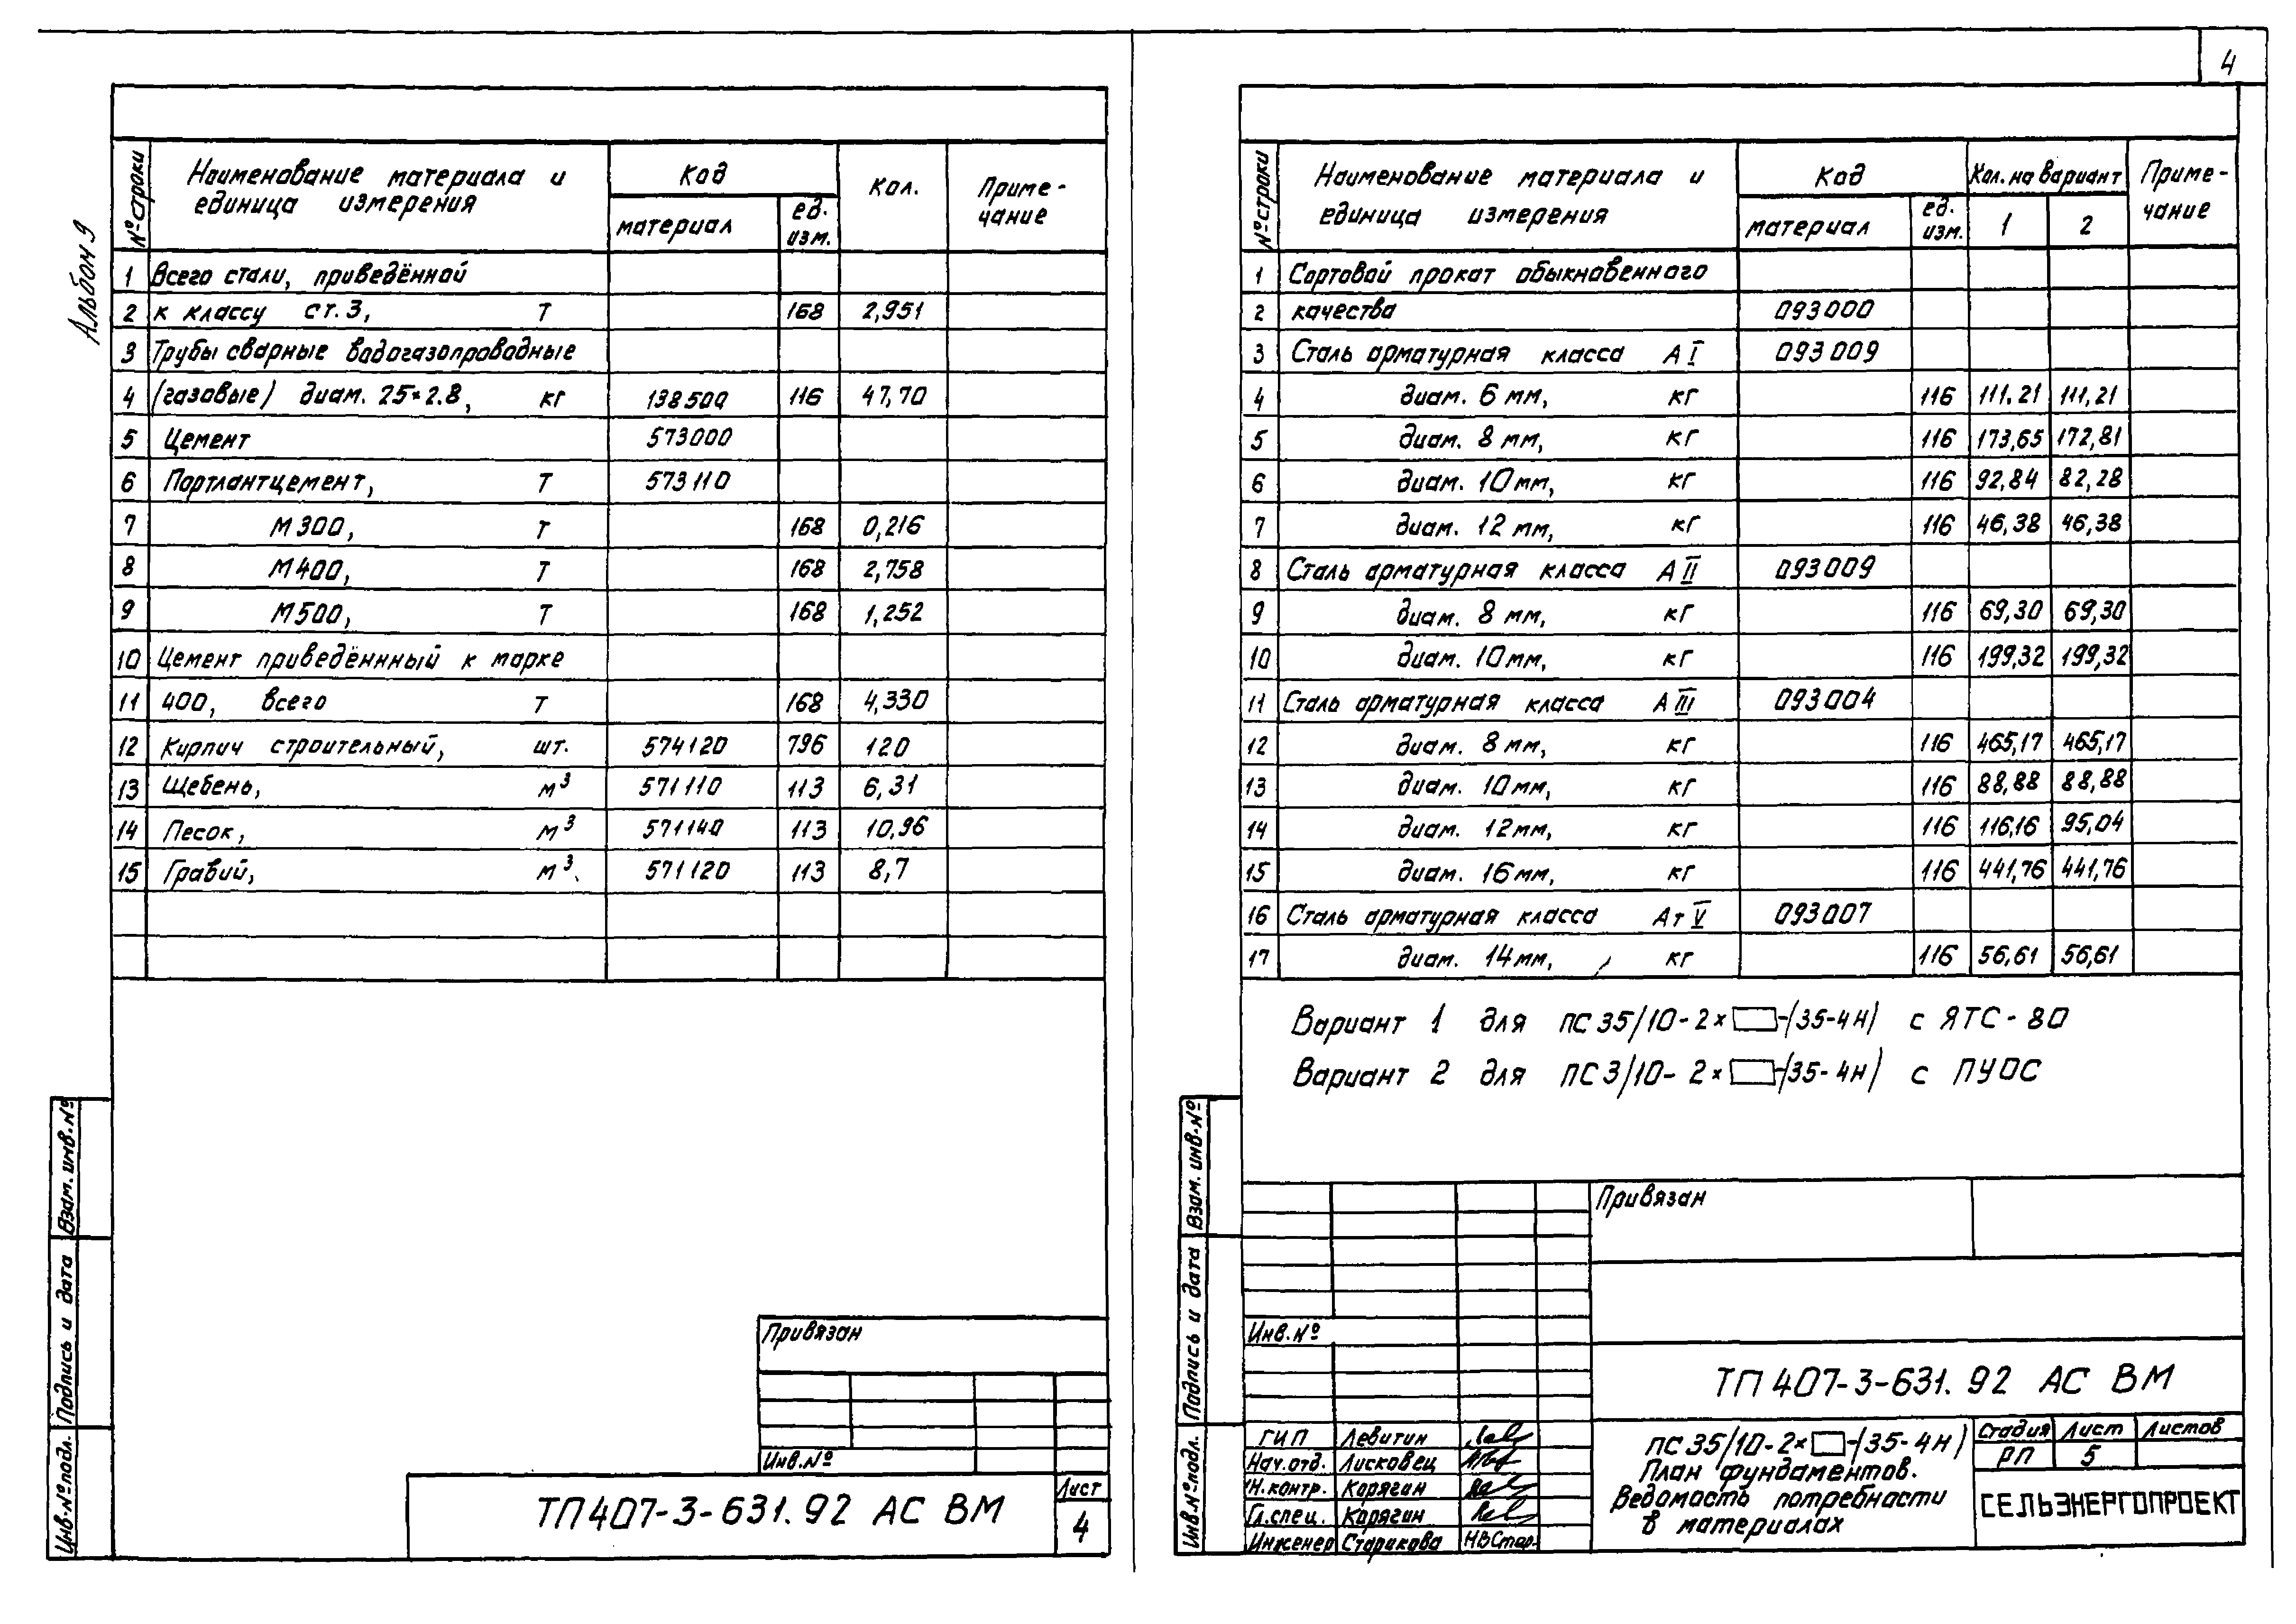 4
Альбом 9
№ строки | Наименование материала и единица измерения | Код | Кол. | Приме-чание
материал | ед. изм.
1 Всего стали, приведённой
2 к классу ст.3, Т 168 2,951
3 Трубы сварные водогазопроводные
4 (газовые) диам. 25×2.8, кг 138500 116 47,70
5 Цемент 573000
6 Портлантцемент, Т 573110
7 М300, Т 168 0,216
8 М400, Т 168 2,758
9 М500, Т 168 1,252
10 Цемент приведённный к марке
11 400, всего Т 168 4,330
12 Кирпич строительный, шт. 574120 796 120
13 Щебень, м³ 571110 113 6,31
14 Песок, м³ 571140 113 10,96
15 Гравий, м³ 571120 113 8,7
Взам. инв.№
Подпись и дата
Инв.№подл.
Привязан
Инв.№
ТП407-3-631.92 АС ВМ
Лист
4
№ строки | Наименование материала и единица измерения | Код | Кол. на вариант | Приме-чание
материал | ед. изм. | 1 | 2
1 Сортовой прокат обыкновенного
2 качества 093000
3 Сталь арматурная класса А I 093009
4 диам. 6 мм, кг 116 111.21 111,21
5 диам. 8 мм, кг 116 173,65 172,81
6 диам. 10мм, кг 116 92,84 82,28
7 диам. 12 мм, кг 116 46,38 46,38
8 Сталь арматурная класса А II 093009
9 диам. 8 мм, кг 116 69,30 69,30
10 диам. 10мм, кг 116 199,32 199,32
11 Сталь арматурная класса А III 093004
12 диам. 8 мм, кг 116 465,17 465,17
13 диам. 10мм, кг 116 88,88 88,88
14 диам. 12мм, кг 116 116,16 95,04
15 диам. 16мм, кг 116 441,76 441,76
16 Сталь арматурная класса Ат V 093007
17 диам. 14мм, кг 116 56,61 56,61
Вариант 1 для ПС 35/10-2×□-(35-4Н) с ЯТС-80
Вариант 2 для ПС 3/10-2×□-(35-4Н) с ПУОС
Взам. инв.№
Подпись и дата
Инв.№подл.
Привязан
Инв.№
ТП 407-3-631.92 АС ВМ
ГИП Левитин
Нач.отд. Лисковец
Н.контр. Карягин
Гл.спец. Карягин
Инженер Старикова НВСтар.
ПС 35/10-2×□-(35-4Н)
План фундаментов.
Ведомость потребности
в материалах
Стадия Лист Листов
РП 5
СЕЛЬЭНЕРГОПРОЕКТ